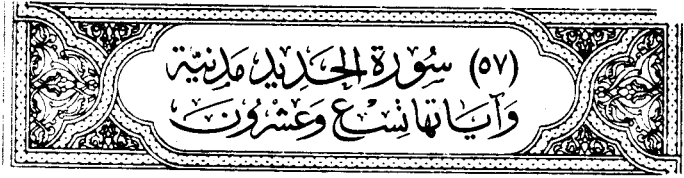 (٥٧) سُورَة الحَدِيد مَدَنِيَّة
وَآيَاتهَا تِسْع وَعشْرُونَ